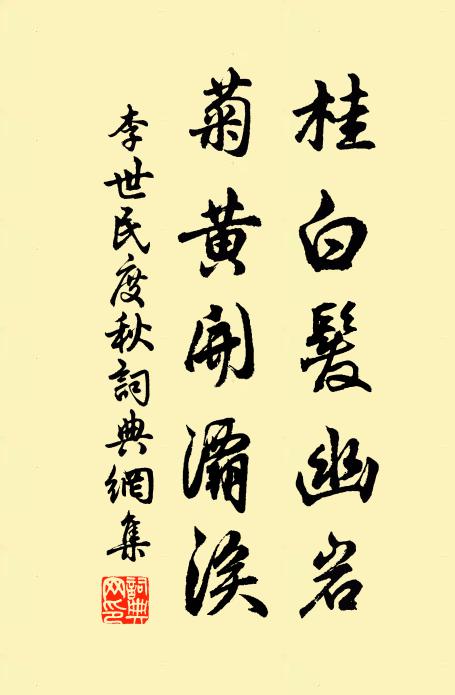 桂白髮幽岩
菊黃開灞涘
李世民度秋詞典網集
詞典網印